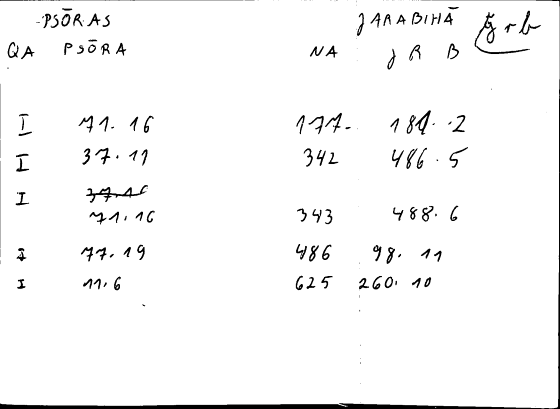 PSŌRAS JARABIHĀ Jrb
QA PSŌRA NA J R B
I 71.16 177. 181.2
I 37.11 342 486.5
I 37.16
71.16 343 488.6
I 77.19 486 98.11
I 11.6 625 260.10